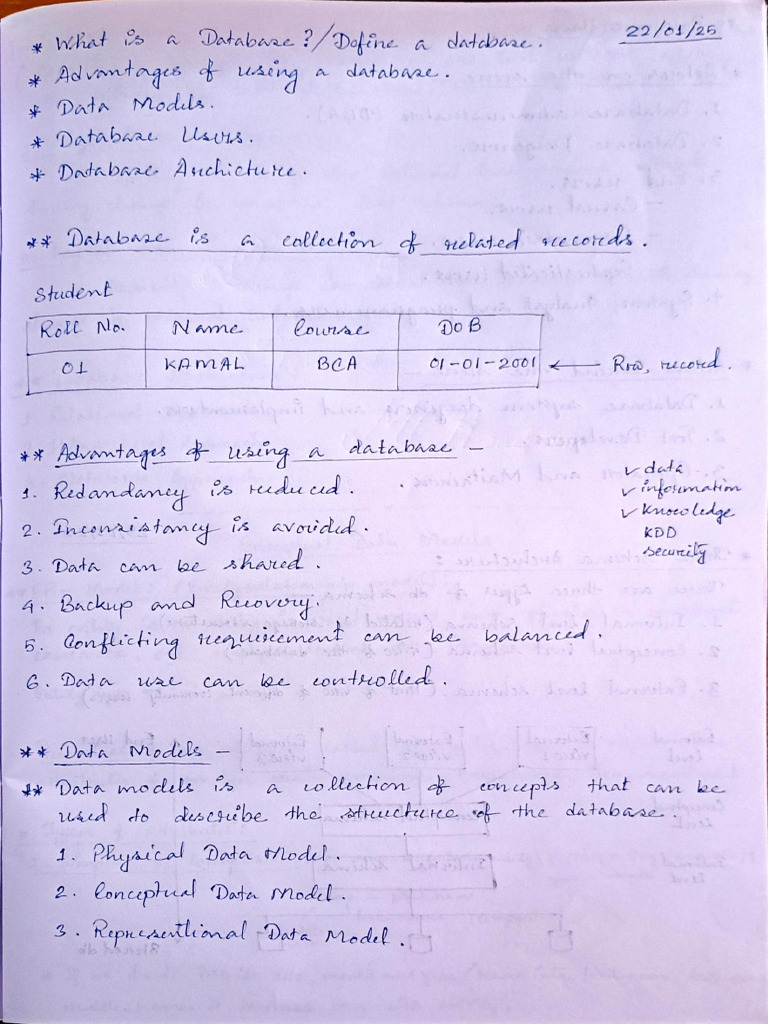 22/01/25
* What is a Database?/Define a database.
* Advantages of using a database.
* Data Models.
* Database Users.
* Database Archicture.
** Database is a collection of related records.
Student
Roll No. Name Course DOB
01 KAMAL BCA 01-01-2001 ← Row, record.
** Advantages of using a database –
1. Redandancy is reduced.
2. Inconsistancy is avoided.
3. Data can be shared.
4. Backup and Recovery.
5. Conflicting requirement can be balanced.
6. Data use can be controlled.
✓ data
✓ information
✓ Knowledge
KDD
security
** Data Models –
** Data models is a collection of concepts that can be
used to describe the structure of the database.
1. Physical Data Model.
2. Conceptual Data Model.
3. Representional Data Model.